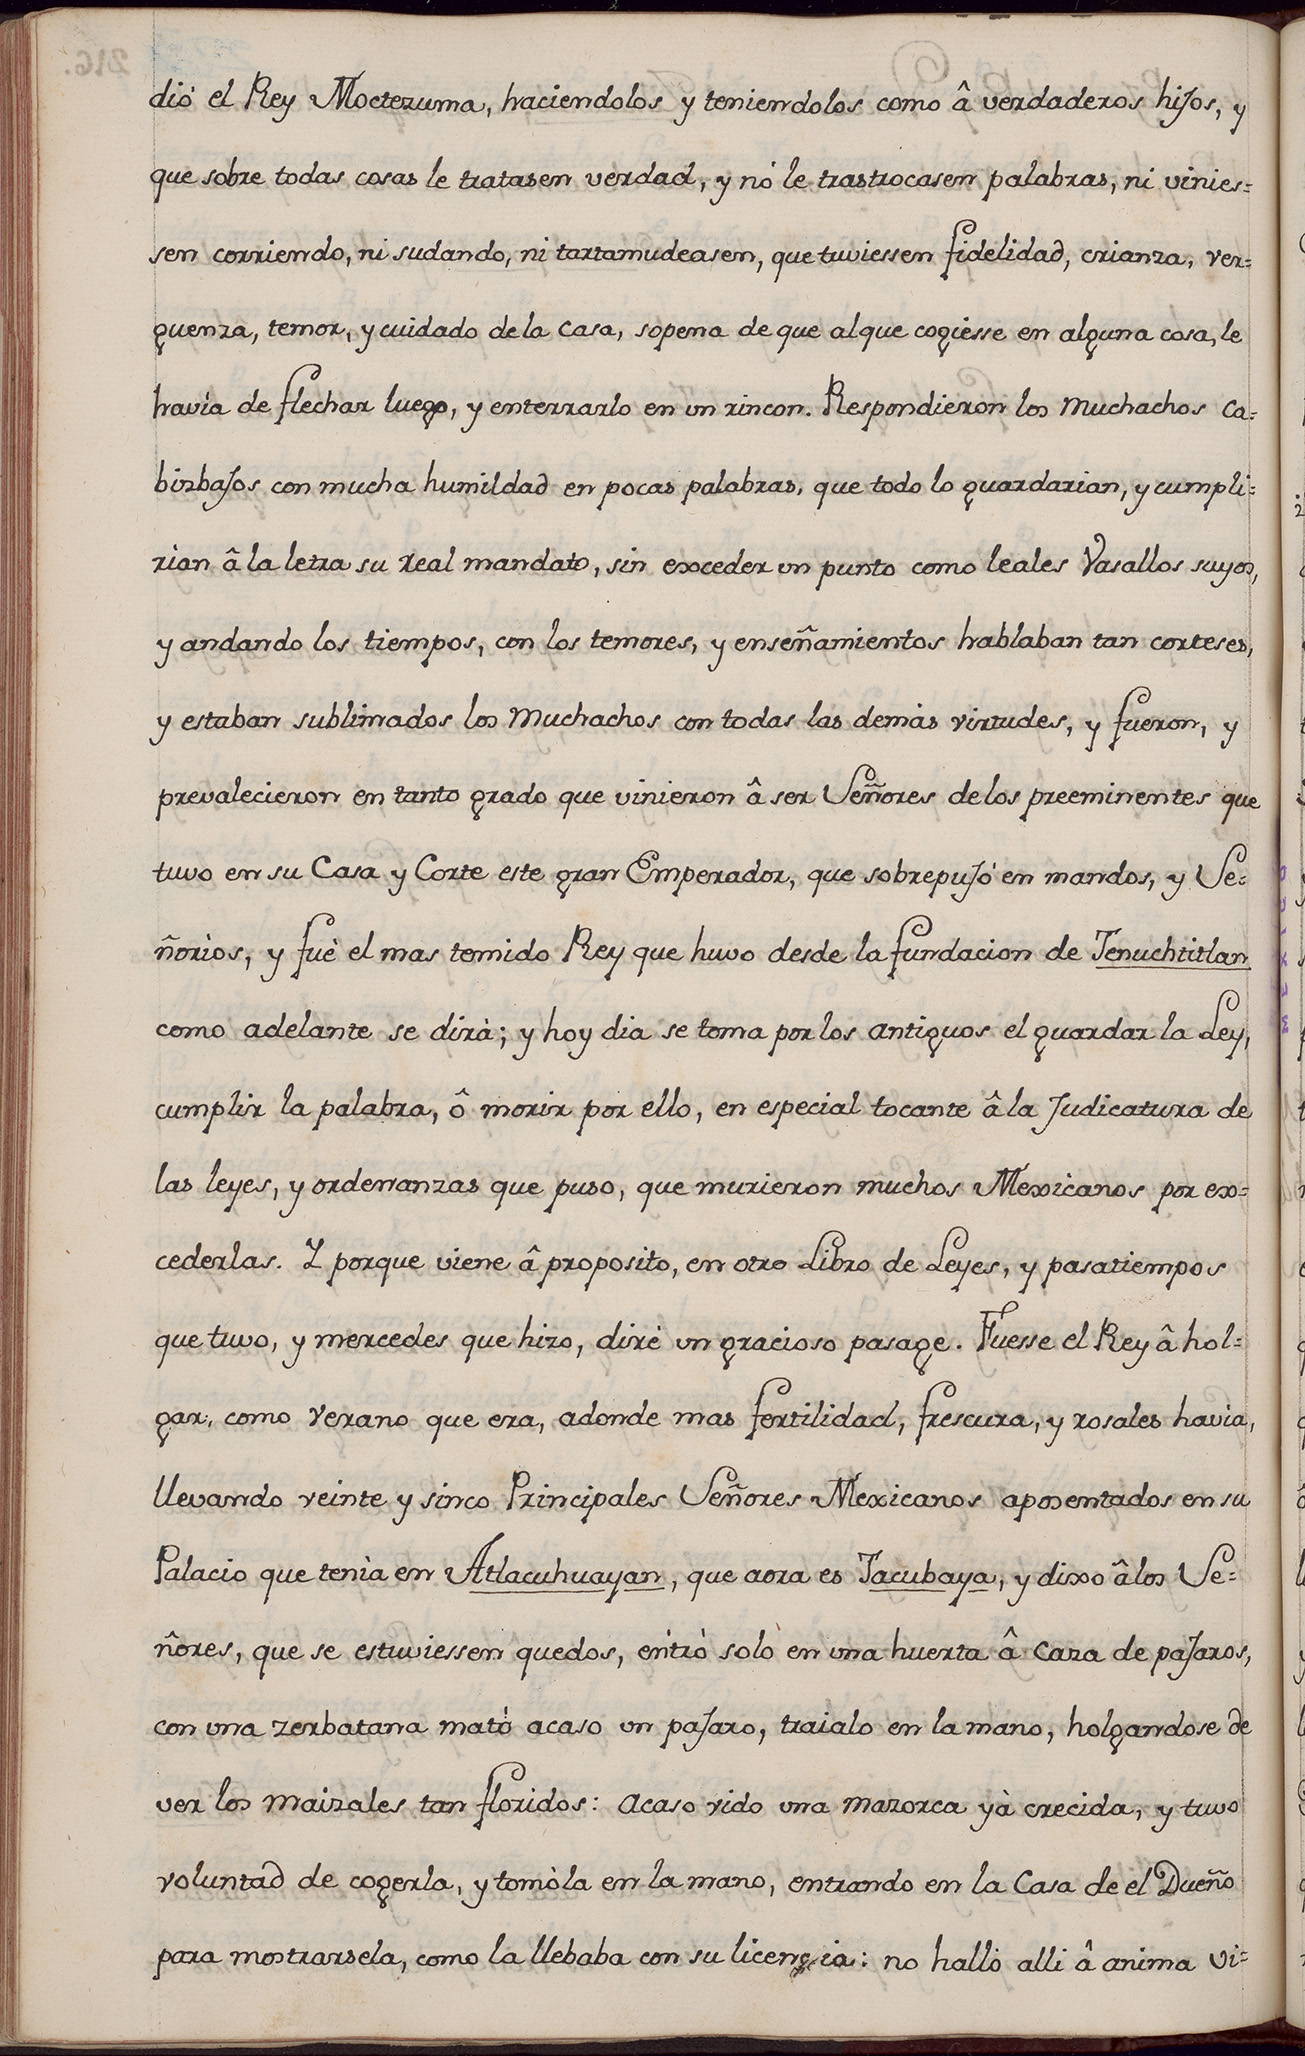 dió el Rey Moctezuma, haciendolos y teniendolos como â verdaderos hijos, y
que sobre todas cosas le tratasen verdad, y nó le trastrocasen palabras, ni vinies=
sen corriendo, ni sudando, ni tartamudeasen, que tuviessen fidelidad, crianza, ver=
guenza, temor, y cuidado de la casa, sopena de que al que cogiesse en alguna cosa, le
havía de flechar luego, y enterrarlo en un rincon. Respondieron los muchachos ca=
bizbajos con mucha humildad en pocas palabras, que todo lo guardarian, y cumpli=
rian â la letra su real mandato, sin exceder un punto como leales Vasallos suyos,
y andando los tiempos, con los temores, y enseñamientos hablaban tan corteses,
y estaban sublimados los muchachos con todas las demàs virtudes, y fueron, y
prevalecieron en tanto grado que vinieron â ser Señores de los preeminentes que
tuvo en su Casa y Corte este gran Emperador, que sobrepujó en mandos, y Se=
ñorìos, y fuè el mas temido Rey que huvo desde la fundacion de Tenuchtitlan
como adelante se dirà; y hoy dia se toma por los antiguos el guardar la Ley,
cumplir la palabra, ô morir por ello, en especial tocante â la Judicatura de
las leyes, y ordenanzas que puso, que murieron muchos Mexicanos por ex=
cederlas. Y porque viene â proposito, en otro Libro de Leyes, y pasatiempos
que tuvo, y mercedes que hizo, diré un gracioso pasage. Fuesse el Rey â hol=
gar, como Verano que era, adonde mas fertilidad, frescura, y rosales havia,
llevando veinte y sinco Principales Señores Mexicanos aposentados en su
Palacio que tenìa en Atlacuhuayan, que aora es Tacubaya, y dixo â los Se=
ñores, que se estuviessen quedos, entrò solo en una huerta â caza de pajaros,
con una zerbatana matò acaso un pajaro, traialo en la mano, holgandose de
ver los maizales tan floridos: acaso vido una mazorca yà crecida, y tuvo
voluntad de cogerla, y tomòla en la mano, entrando en la Casa de el Dueño
para mostrarsela, como la llebaba con su licencia: no hallò alli â anima vi=